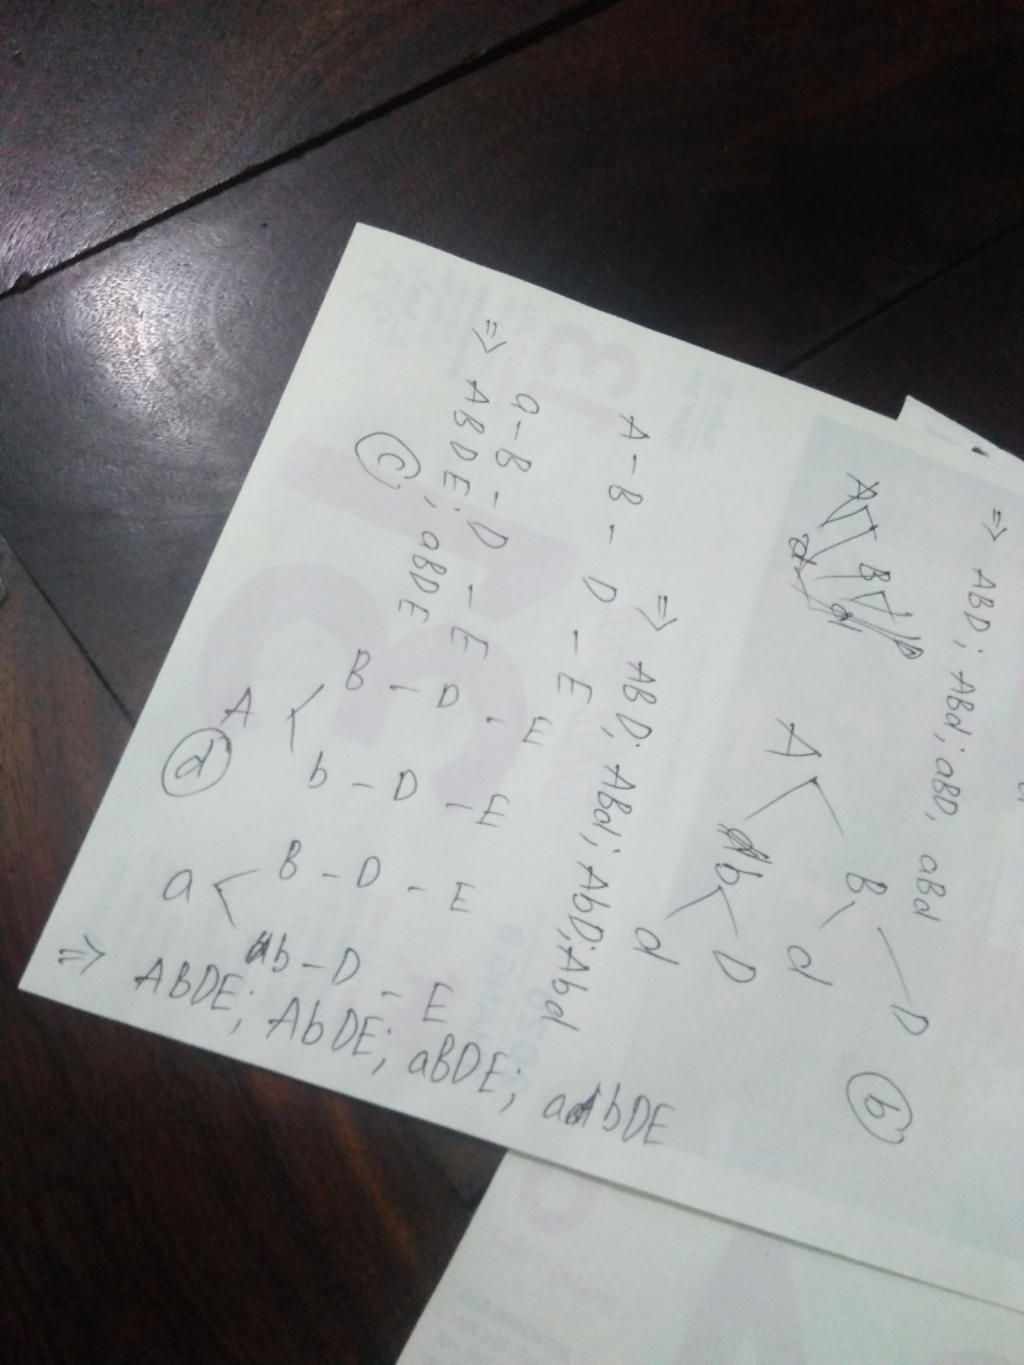 ⇒ ABD; ABd; aBD, aBd
(b)
A < B < D
d
b < D
d
⇒ ABD; ABd; AbD; Abd
(c)
A - B - D - E
a - B - D - E
⇒ ABDE; aBDE
(d)
A < B - D - E
b - D - E
a < B - D - E
b - D - E
⇒ ABDE; AbDE; aBDE; abDE